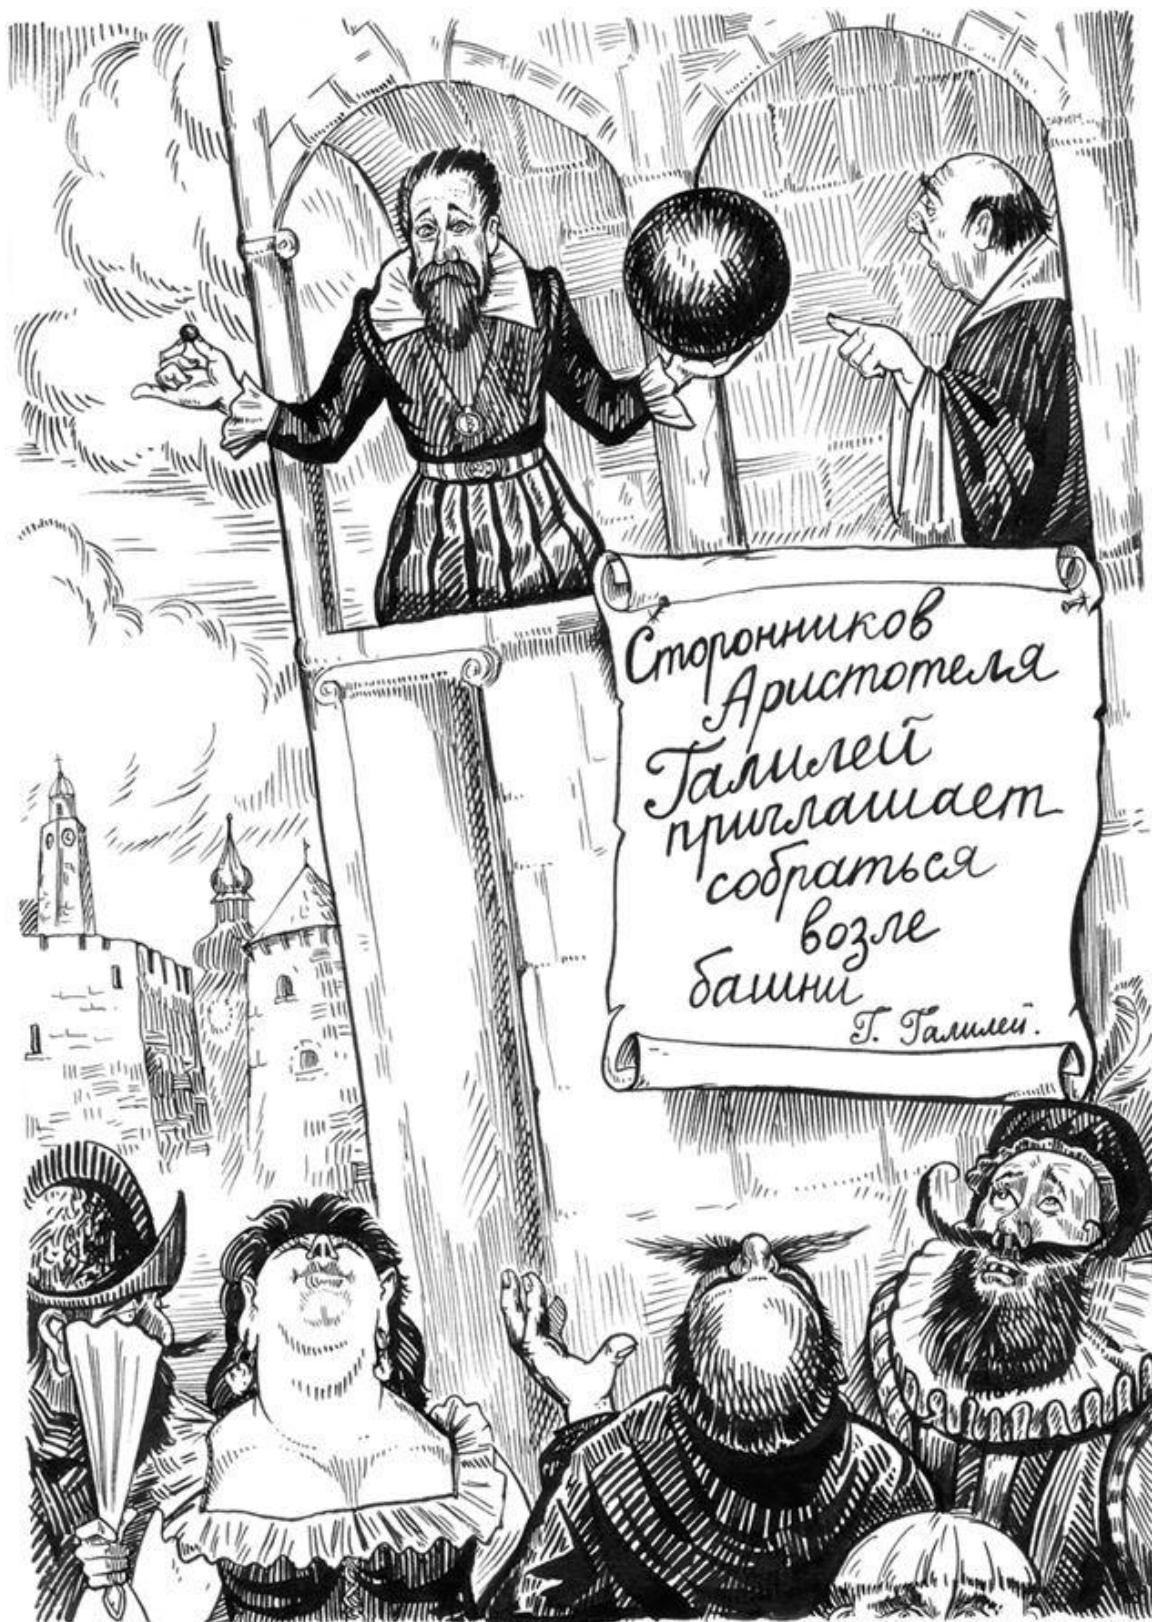 Сторонников
Аристотеля
Галилей
приглашает
собраться
возле
башни
Г. Галилей.